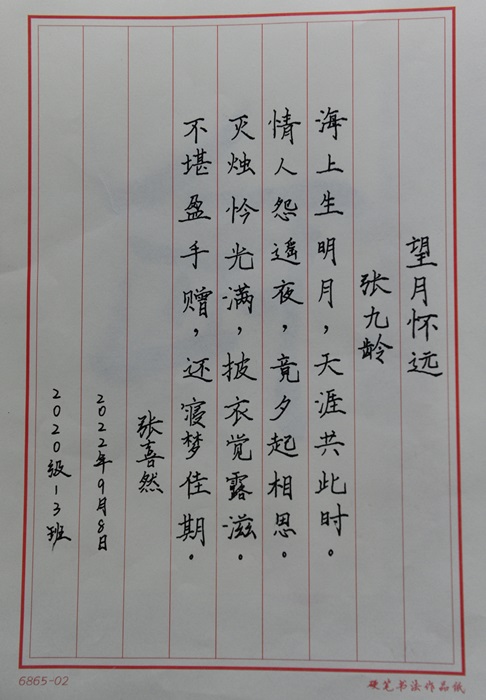 望月怀远
张九龄
海上生明月，天涯共此时。
情人怨遥夜，竟夕起相思。
灭烛怜光满，披衣觉露滋。
不堪盈手赠，还寝梦佳期。
张喜然
2022年9月8日
2020级-3班
6865-02
硬笔书法作品纸